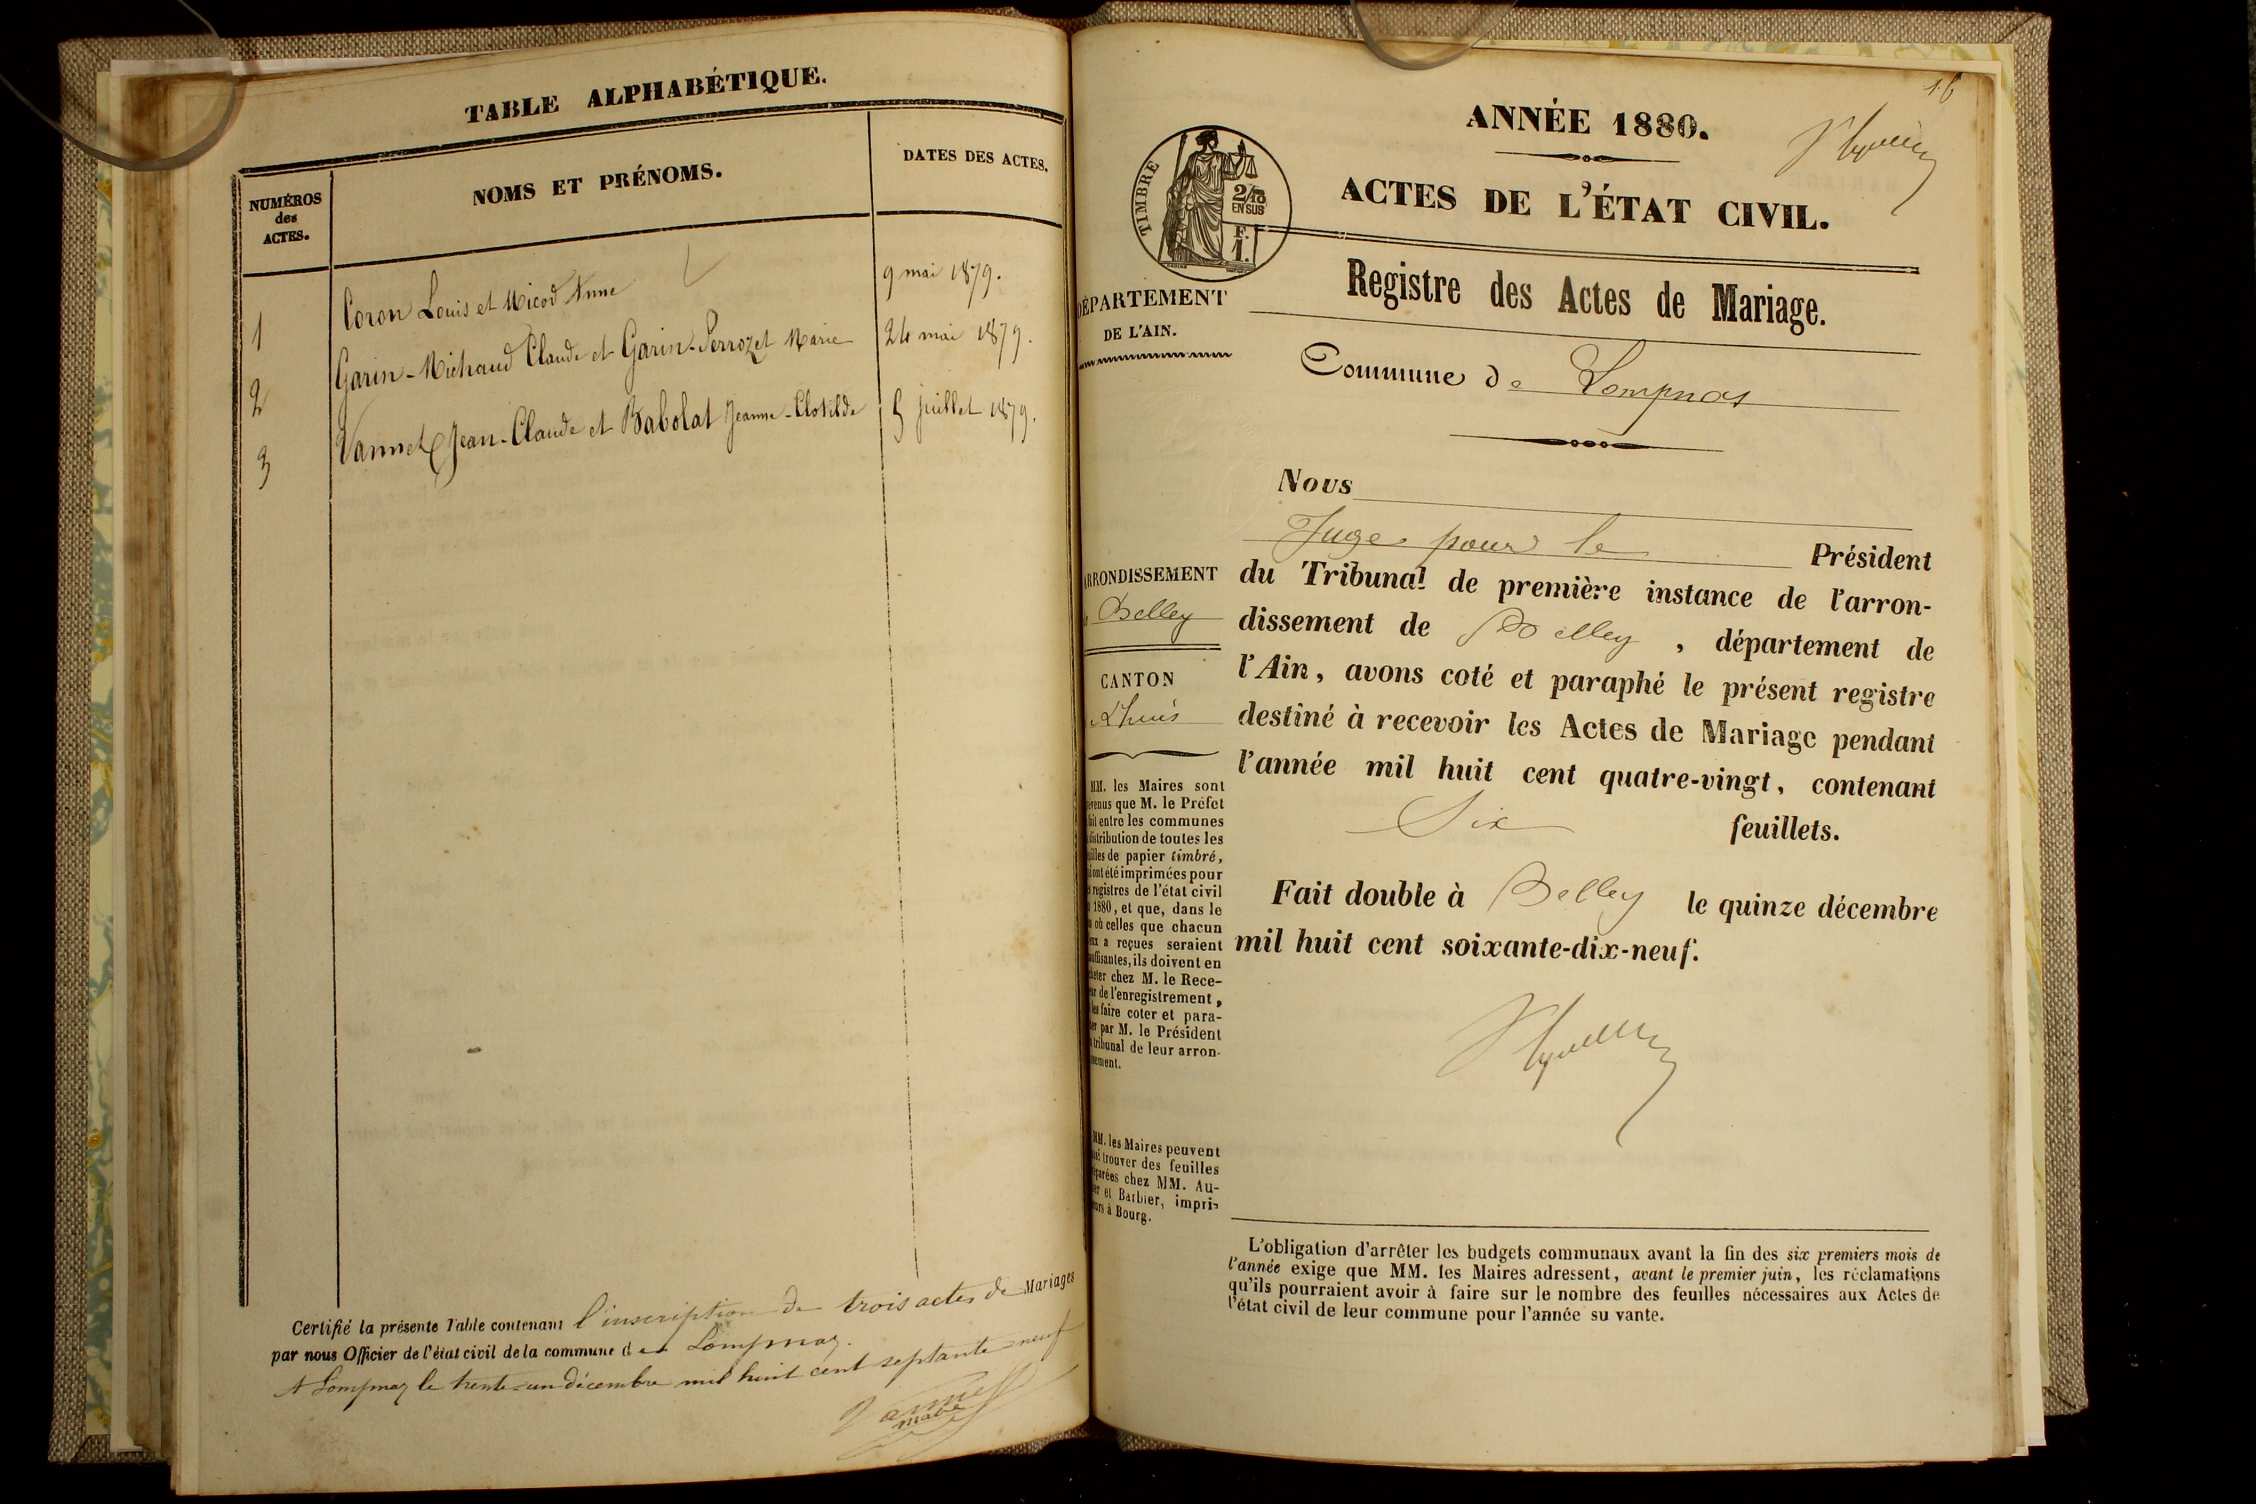 TABLE ALPHABÉTIQUE.
NUMÉROS
des
ACTES.
NOMS ET PRÉNOMS.
DATES DES ACTES.
1 Coron Louis et Micod Anne 9 mai 1879.
2 Garin-Michaud Claude et Garin-Perrozet Marie 24 mai 1879.
3 Vannet Jean-Claude et Babolat Jeanne-Clotilde 5 juillet 1879.
Certifié la présente Table contenant l'inscription de trois actes de Mariages
par nous Officier de l'état civil de la commune de Lompnaz.
A Lompnaz le trente-un décembre mil huit cent septante-neuf
Vannet
maire
16
ANNÉE 1880.
ACTES DE L'ÉTAT CIVIL.
TIMBRE
2/10
EN SUS
F.
1.
Registre des Actes de Mariage.
DÉPARTEMENT
DE L'AIN.
Commune de Lompnas
Nous
Juge pour le Président
du Tribunal de première instance de l'arron-
dissement de Belley, département de
l'Ain, avons coté et paraphé le présent registre
destiné à recevoir les Actes de Mariage pendant
l'année mil huit cent quatre-vingt, contenant
Six feuillets.
Fait double à Belley le quinze décembre
mil huit cent soixante-dix-neuf.
ARRONDISSEMENT
Belley
CANTON
Lhuis
MM. les Maires sont
evenus que M. le Préfet
fait entre les communes
distribution de toutes les
illes de papier timbré,
ont été imprimées pour
registres de l'état civil
1880, et que, dans le
où celles que chacun
eux a reçues seraient
uffisantes, ils doivent en
heter chez M. le Rece-
ur de l'enregistrement,
les faire coter et para-
er par M. le Président
tribunal de leur arron-
ement.
MM. les Maires peuvent
trouver des feuilles
éparées chez MM. Au-
er et Barbier, impri-
eurs à Bourg.
L'obligation d'arrêter les budgets communaux avant la fin des six premiers mois de
l'année exige que MM. les Maires adressent, avant le premier juin, les réclamations
qu'ils pourraient avoir à faire sur le nombre des feuilles nécessaires aux Actes de
l'état civil de leur commune pour l'année su vante.